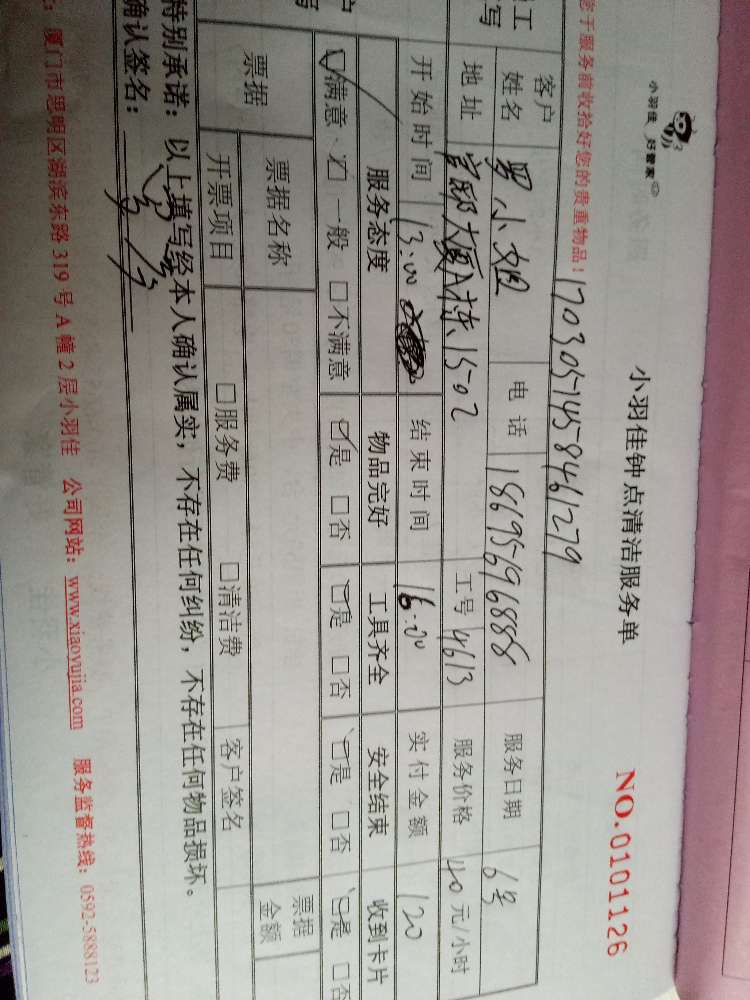 小羽佳 好管家
小羽佳钟点清洁服务单
NO.0101126
您于服务前收拾好您的贵重物品！170305-145-8461279
客户姓名 罗小姐 电话 18695696888 服务日期 6号
地址 官邸大厦A栋15-02 工号 4613 服务价格 40元/小时
开始时间 13:00 结束时间 16:00 实付金额 120
服务态度 物品完好 工具齐全 安全结束 收到卡片
☑满意 □一般 □不满意 ☑是 □否 ☑是 □否 ☑是 □否 ☑是 □否
票据 票据名称 票据金额
开票项目 □服务费 □清洁费 客户签名
特别承诺：以上填写经本人确认属实，不存在任何纠纷，不存在任何物品损坏。
确认签名：
厦门市思明区湖滨东路319号A幢2层小羽佳 公司网站：www.xiaoyujia.com 服务监督热线：0592-5888123